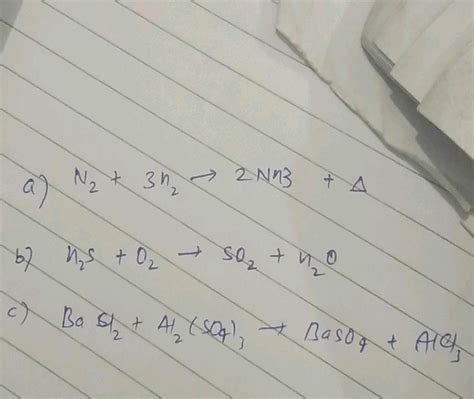 a) N₂ + 3H₂ → 2NH3 + Δ
b) H₂S + O₂ → SO₂ + H₂O
c) BaCl₂ + Al₂(SO₄)₃ → BaSO₄ + AlCl₃